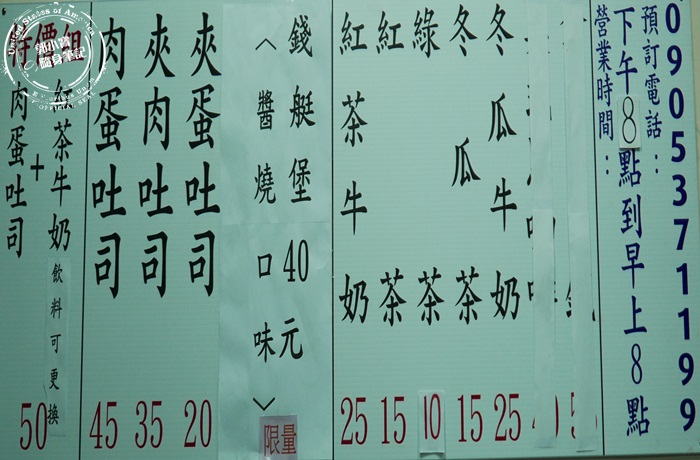 預訂電話：0905371199
營業時間：
下午8點到早上8點
冬瓜牛奶 25
冬瓜茶 15
綠茶 10
紅茶 15
紅茶牛奶 25
錢艇堡40元
〈醬燒口味〉
限量
夾蛋吐司 20
夾肉吐司 35
肉蛋吐司 45
特價組
紅茶牛奶
+
肉蛋吐司
飲料可更換
50